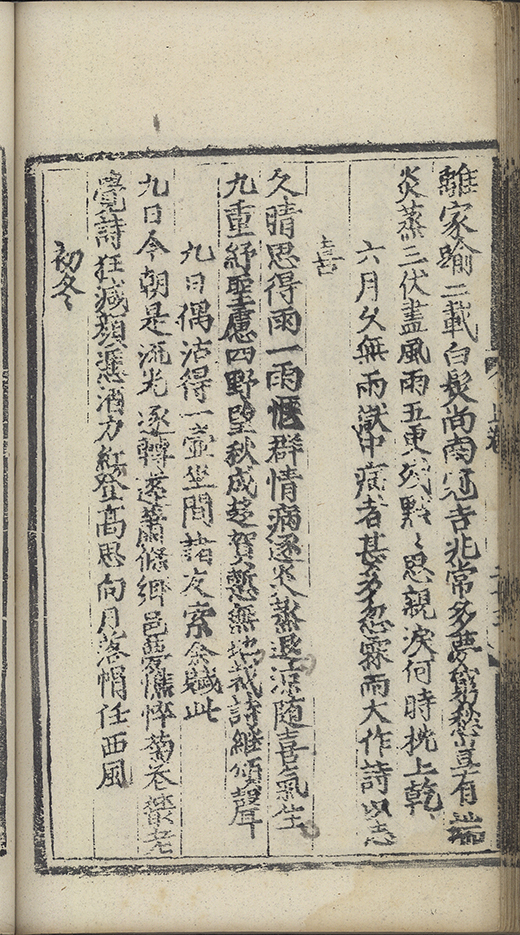 離家踰二載白髮尚南冠吉兆常多夢窮愁豈有端
炎蒸三伏盡風雨五更殘點〻思親淚何時枕上乾
六月久無雨獄中病者甚多忽霖雨大作詩以志
喜
久晴思得雨一雨愜群情病逐炎蒸退涼隨喜氣生
九重紓聖慮四野望秋成莫賀慙無地裁詩繼頌聲
九日偶沽得一壺坐間諸友索余賦此
九日今朝是流光逐轉蓬蕭條鄉邑夢憔悴菊花叢老
覺詩狂減顏憑酒力紅登高思向月落帽任西風
初冬
上卷